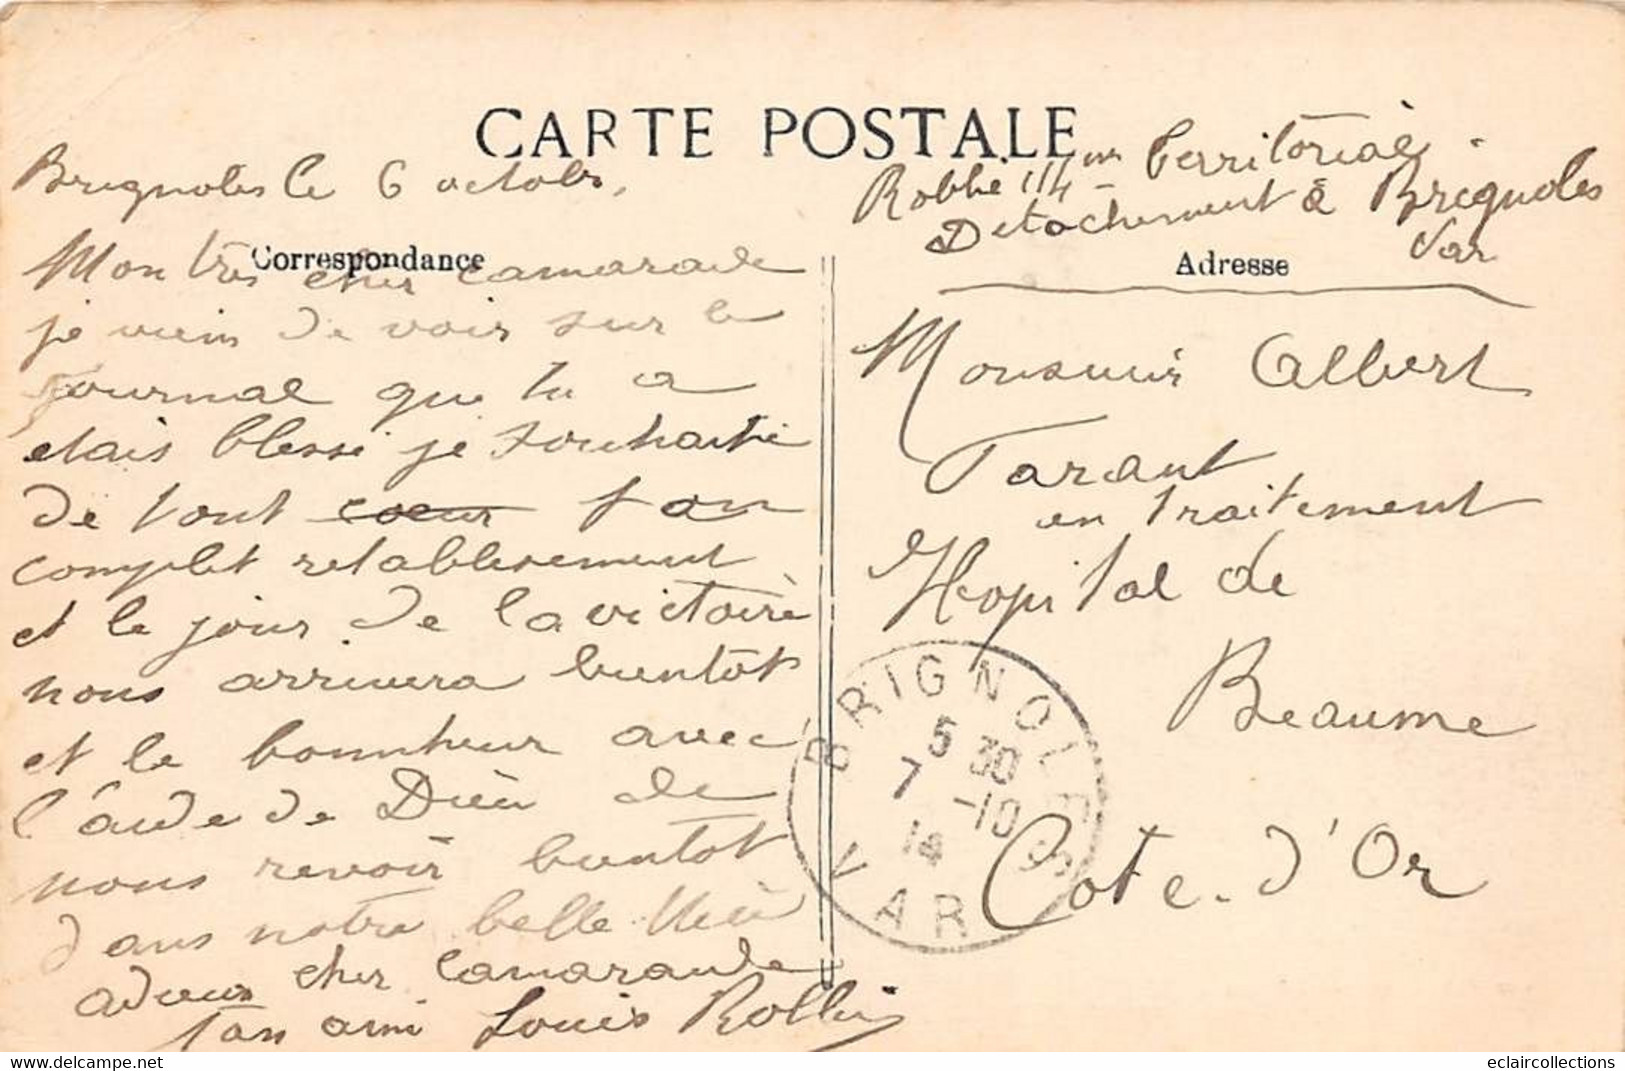 CARTE POSTALE
Brignoles le 6 octobre
Correspondance
Mon très cher camarade
je viens de voir sur le
Journal que tu a
etais blessé je souhaite
de tout coeur ton
complet retablisement
et le jour de la victoire
nous arrivera bientôt
et le bonnheur avec
l'aide de Dieu de
nous revoir bientot
dans notre belle
adieux cher Camarade
ton ami Louis
114me Territorial
Detachement à Brignoles
Var
Adresse
Monsieur Albert
Tarant
en traitement
Hopital de
Beaume
Cote-d'Or
BRIGNOLES
5 30
7 -10
14
VAR
eclaircollections